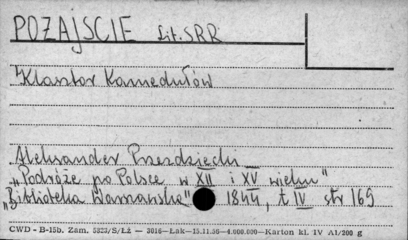 POŻAJŚCIE Lit. SRR
Klasztor Kamedułów
Aleksander Przezdziecki
"Podróże po Polsce w XII i XV wieku"
"Biblioteka Warszawska" 1844, t IV str 169
CWD - B-15b. Zam. 5823/S/Łż — 3016—Łak—15.11.56—4.000.000—Karton kl. IV A1/200 g